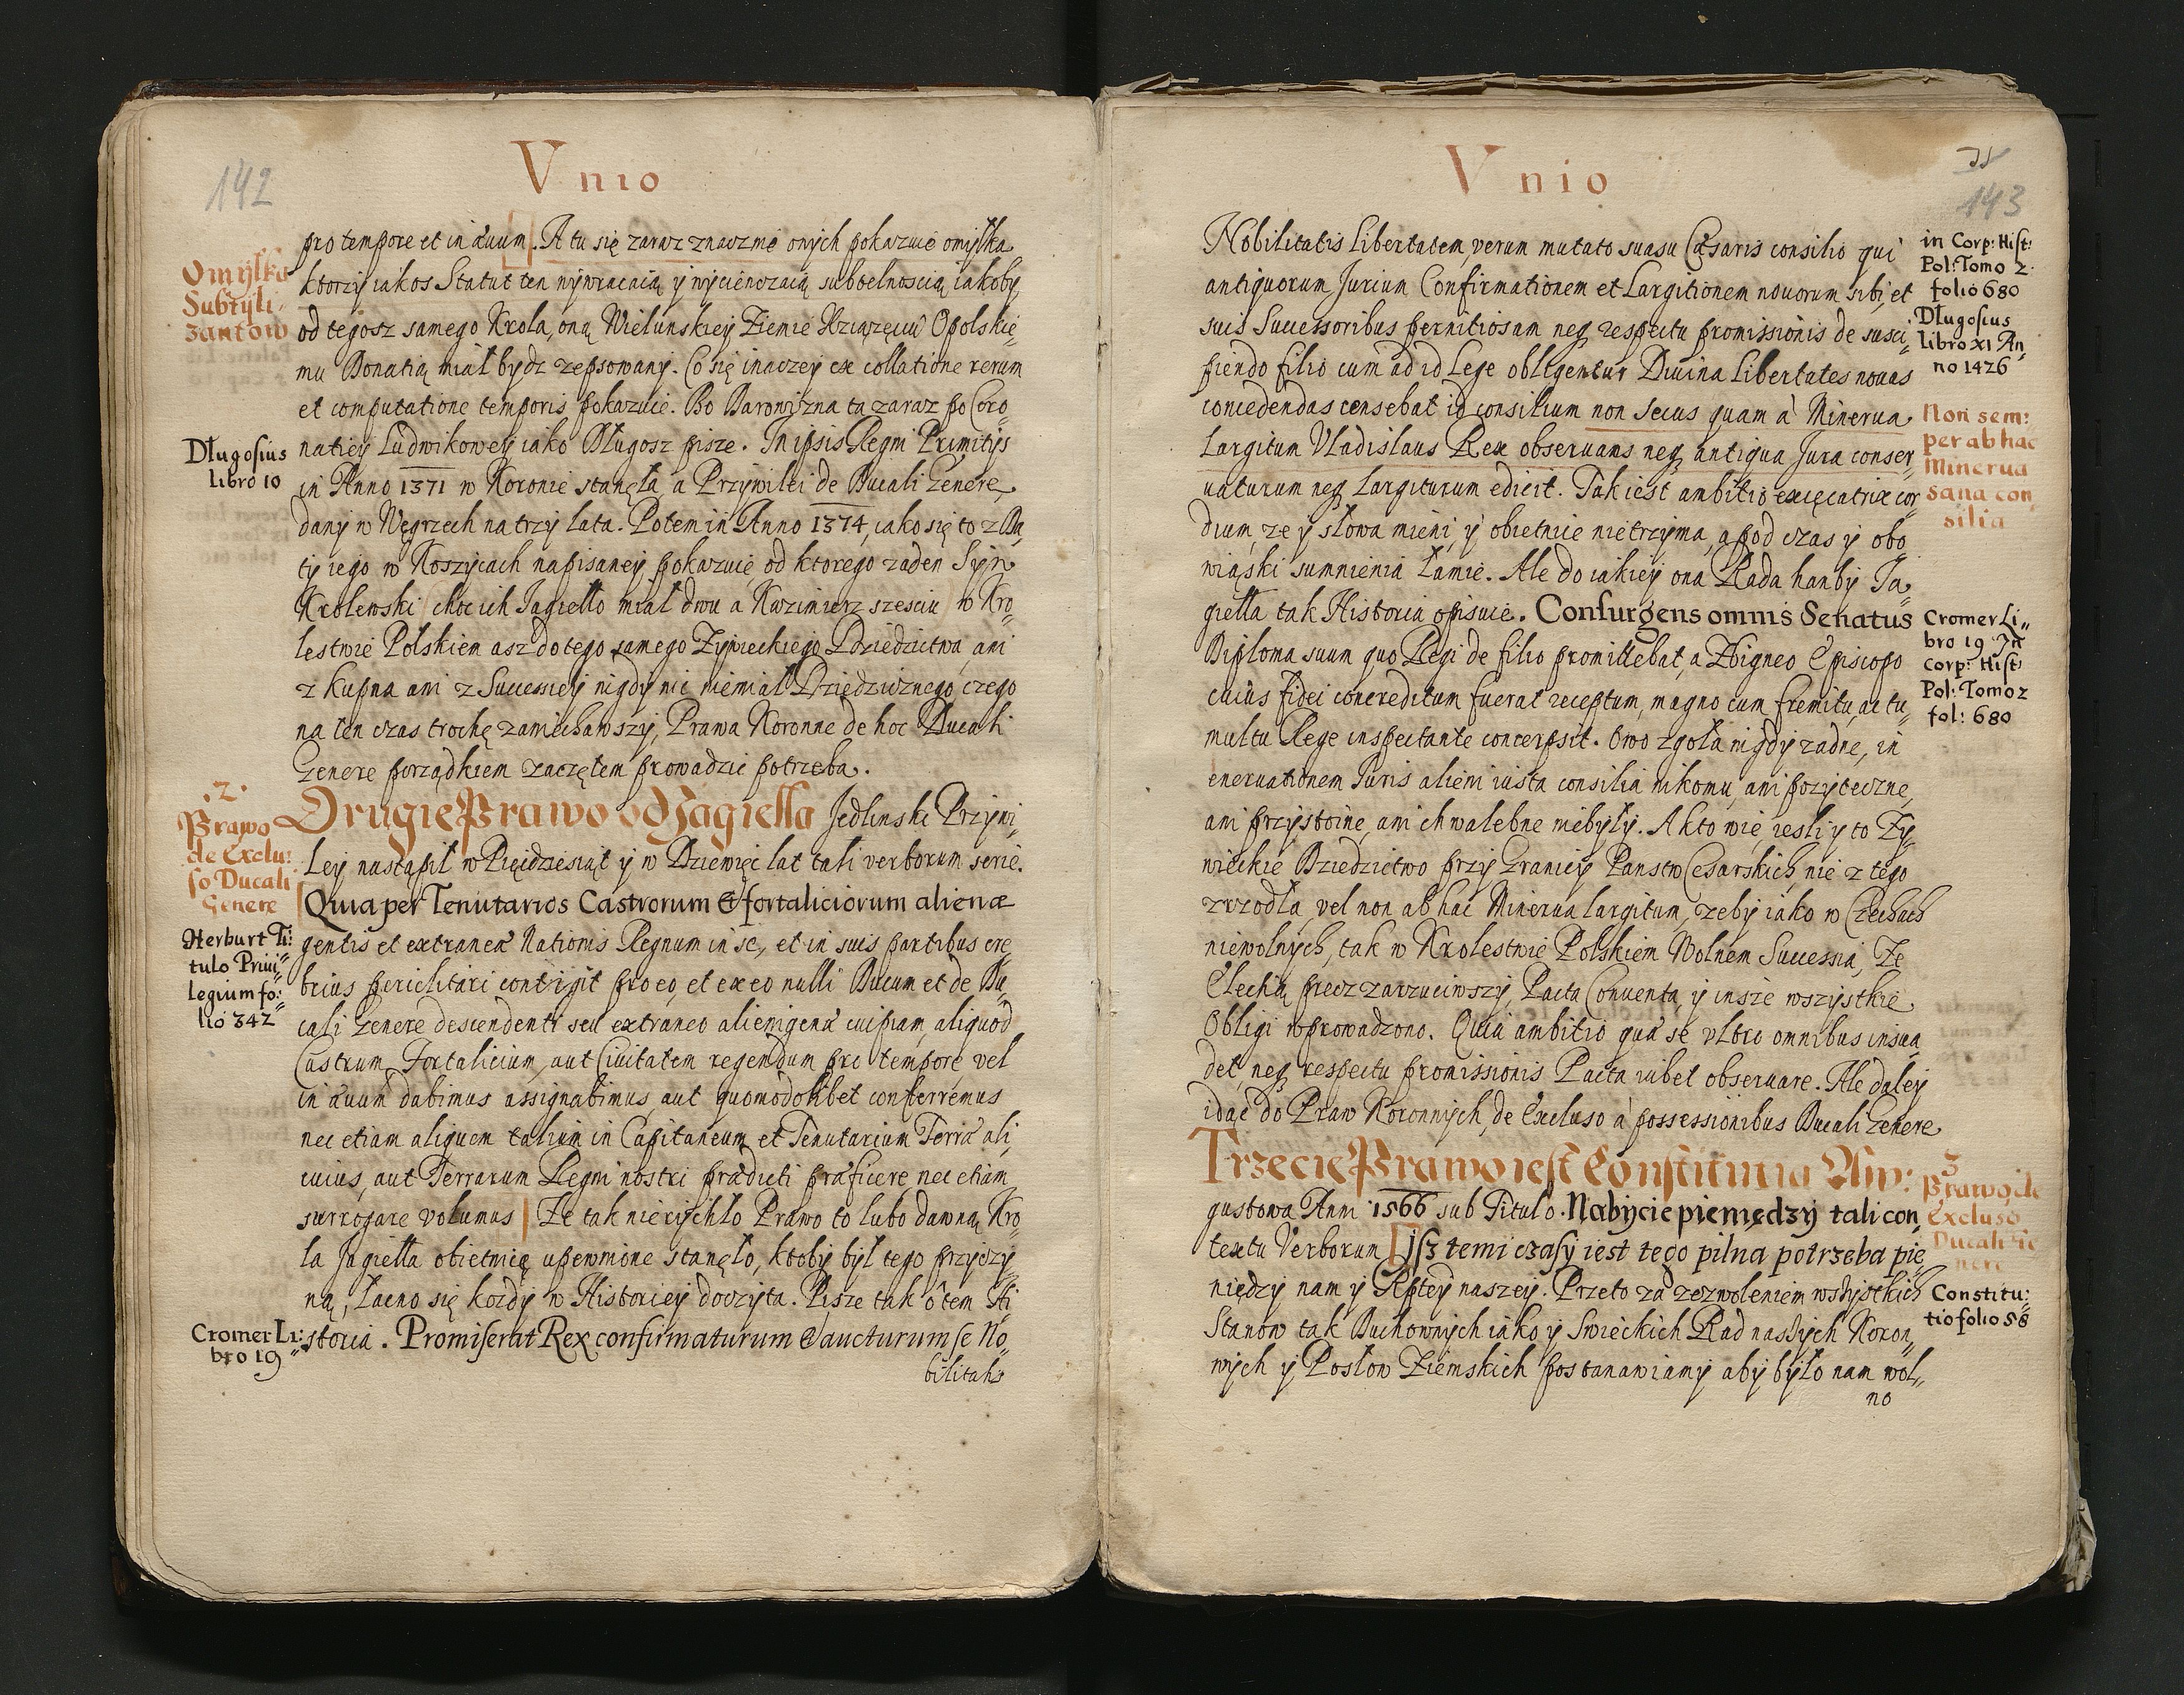 142
Vnio
pro tempore et in æuum. A tu się zaraz znacznie onych pokazuie omyłka
ktorzy iakos Statut ten wywracaią y wycienczaią subtelnoscią iakoby
od tegosz samego Krola, oną Wielunskiey Ziemie Xiązęciu Opolskie„
mu Donatią miał bydz zepsowany. Co się inaczey ex collatione rerum
et computatione temporis pokazuie. Bo Darowizna ta zaraz po Coro„
natiey Ludwikowey iako Długosz pisze. In ipsis Regni Primitijs
in Anno 1371 w Koronie stanęła, a Przywilei de Ducali Genere
dany w Węgrzech na trzy lata. Potem in Anno 1374, iako się to z Da„
ty iego w Koszycach napisaney pokazuie, od ktorego zaden Syn
Krolewski (choc ich Jagiełło miał dwu a Kazimierz szesciu) w Kro„
lestwie Polskiem asz do tego samego Zywieckiego Dziedzictwa, ani
z kupna ani z Successiey nigdy nic niemiał Dziedzicznego, czego
na ten czas trochę zaniechawszy, Prawa Koronne de hoc Ducali
Genere porządkiem zaczętem prowadzic potrzeba.
Drugie Prawo od Jagiella Jedlinski Przywi„
ley nastąpił w Pięcdziesiąt y w Dziewięc lat tali verborum serie.
Quia per Tenutarios Castrorum & fortaliciorum alienæ
gentis et extraneæ Nationis Regnum in se, et in suis partibus cre„
brius periclitari contigit pro eo, et ex eo nulli Ducum et de Du„
cali Genere descendenti seu extraneo alienigenæ cuipiam, aliquod
Castrum, Fortalicium, aut Ciuitatem regendum pro tempore, vel
in æuum dabimus assignabimus, aut quomodolibet conferremus
nec etiam aliquem talium in Capitaneum et Tenutarium Terræ ali„
cuius, aut Terrarum Regni nostri prædicti præficere nec etiam
surrogare volumus Ze tak nierychło Prawo to lubo dawną Kro„
la Jagiełła obietnicą upewnione stanęło, ktoby był tego przyczy„
ną, łacno się kozdy w Historiey doczyta. Pisze tak o tem Hi„
storia. Promiserat Rex confirmaturum & aucturum se No„
bilitatis
Omyłka
Subtyli„
zantow
Długosius
libro 10
.2.
Prawo
de Exclu:
so Ducali
Genere
Herburt Ti:
tulo Priui„
legium fo:
lio 342
Cromer Li:
bro 19
Vnio
38
143
Nobilitatis Libertatem, verum mutato suasu Cæsaris consilio qui
antiquorum Jurium Confirmationem et Largitionem nouorum sibi, et
suis Successoribus pernitiosam neq respectu promissionis de susci„
piendo filio cum ad id Lege obligentur Diuina Libertates nouas
concedendas censebat id consilium non secus quam à Minerua
Largitum Vladislaus Rex obseruans neq antiqua Jura conser„
uaturum neq Largiturum edicit. Tak iest ambitio excæcatrix cor„
dium, ze y słowa mieni, y obietnic nietrzyma, a pod czas y obo„
wiąski sumnienia łamie. Ale do iakiey ona Rada hanby Ja„
giełła tak Historia opisuie. Consurgens omnis Senatus
Diploma suum quo Regi de filio promittebat, a Zbigneo Episcopo
cuius fidei concreditum fuerat receptum, magno cum fremitu, ac tu„
multu Rege inspectante concerpsit. Owo zgoła nigdy zadne, in
eneruationem Juris alieni iusta consilia nikomu, ani pozyteczne,
ani przystoine, ani chwalebne niebyły. A kto wie, iesli y to Zy„
wieckie Dziedzictwo przy Graniey Panstw Cesarskich nie z tego
zrzodła, vel non ab hac Minerua largitum, zeby iako w Czechach
niewolnych, tak w Krolestwie Polskiem Wolnem Successia, Ze
Elechą precz zarzuciwszy, Pacta Conuenta y insze wszystkie
Obligi wprowadzono. Quia ambitio quæ se vltro omnibus insua„
det, neq respectu promissionis Pacta iubet obseruare. Ale daley
idąc do Praw Koronnych, de Excluso à possessionibus Ducali Genere
Trzecie Prawo iest Constitutia Au„
gustowa Anni 1566 sub Titulo. Nabycie pieniędzy tali con„
textu Verborum Jsz temi czasy iest tego pilna potrzeba pie„
niędzy nam y Rptey naszey. Przeto za zezwoleniem wszystkich
Stanow tak Duchownych iako y Swieckich Rad naszych Koron„
nych y Posłow Ziemskich postanawiamy aby było nam wol„
no
in Corp: Hist:
Pol: Tomo 2.
folio 680
Długosius
libro XI An„
no 1426
Non sem:
per ab hac
Minerua
sana con„
silia
Cromer Li„
bro 19 Jn
Corp: Hist:
Pol: Tomo 2
fol: 680
3
Prawo de
Excluso
Ducali Ge
nere
Constitu:
tio folio 58